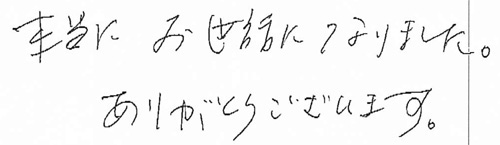 本当に お世話になりました。
ありがとうございます。